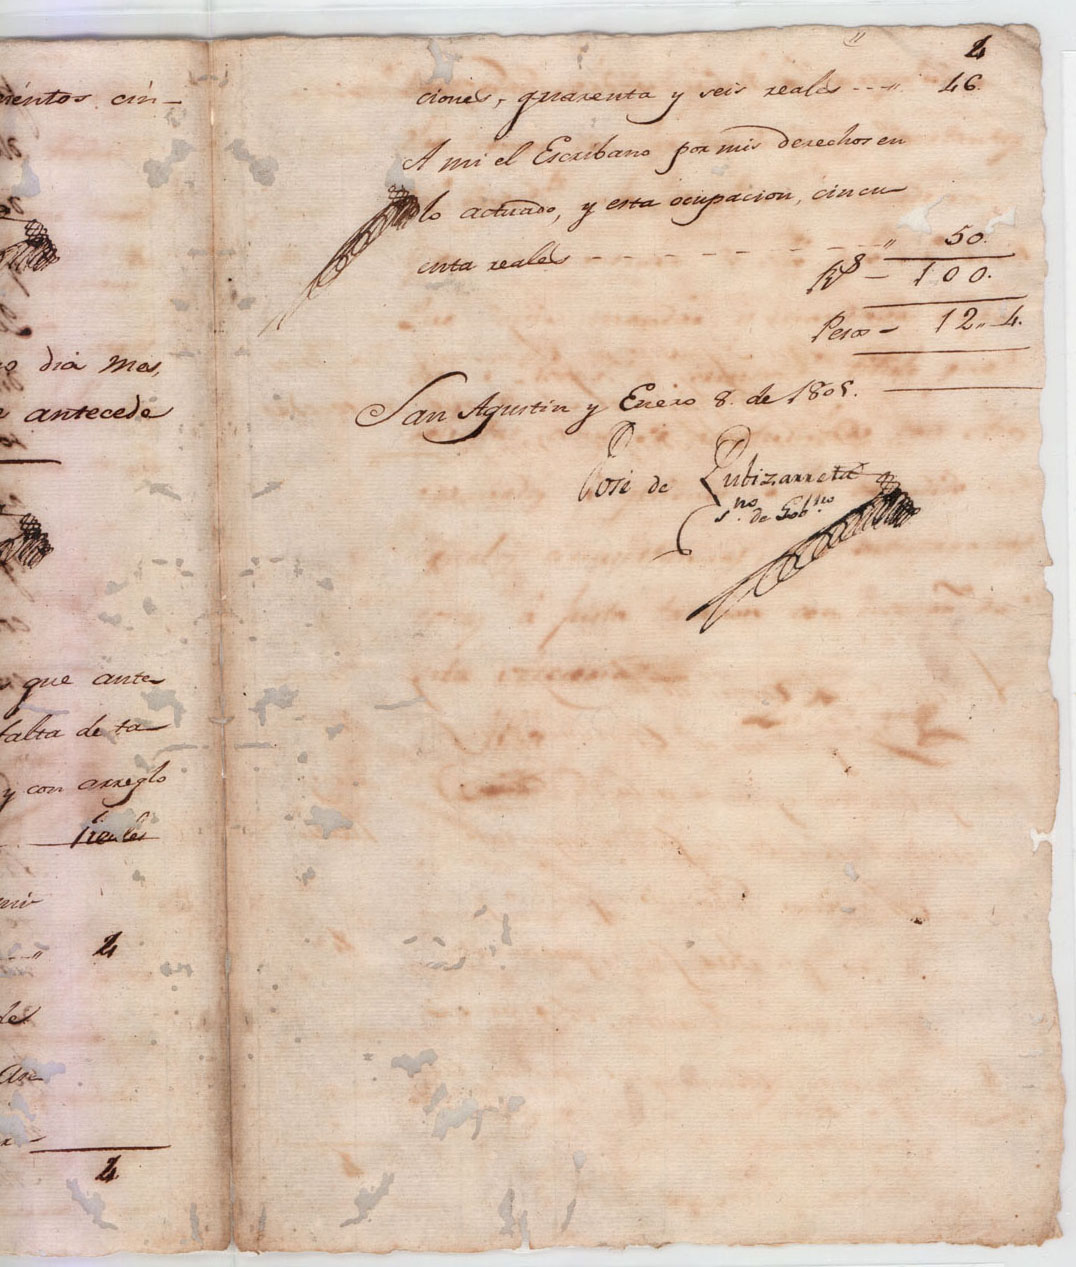 mentos cin-
dia mes,
antecede
que ante
falta de ta
y con arreglo
reales
4
de
4
4
ciones, quarenta y seis reales - - - " 46.
A mi el Escribano por mis derechos en
lo actuado, y esta ocupacion, cincu
enta reales - - - - - - - - - " 50.
Rs - 100.
Pesos - 12,, 4.
San Agustin y Enero 8. de 180
Jose de Zubizarreta
sno. de Gobno